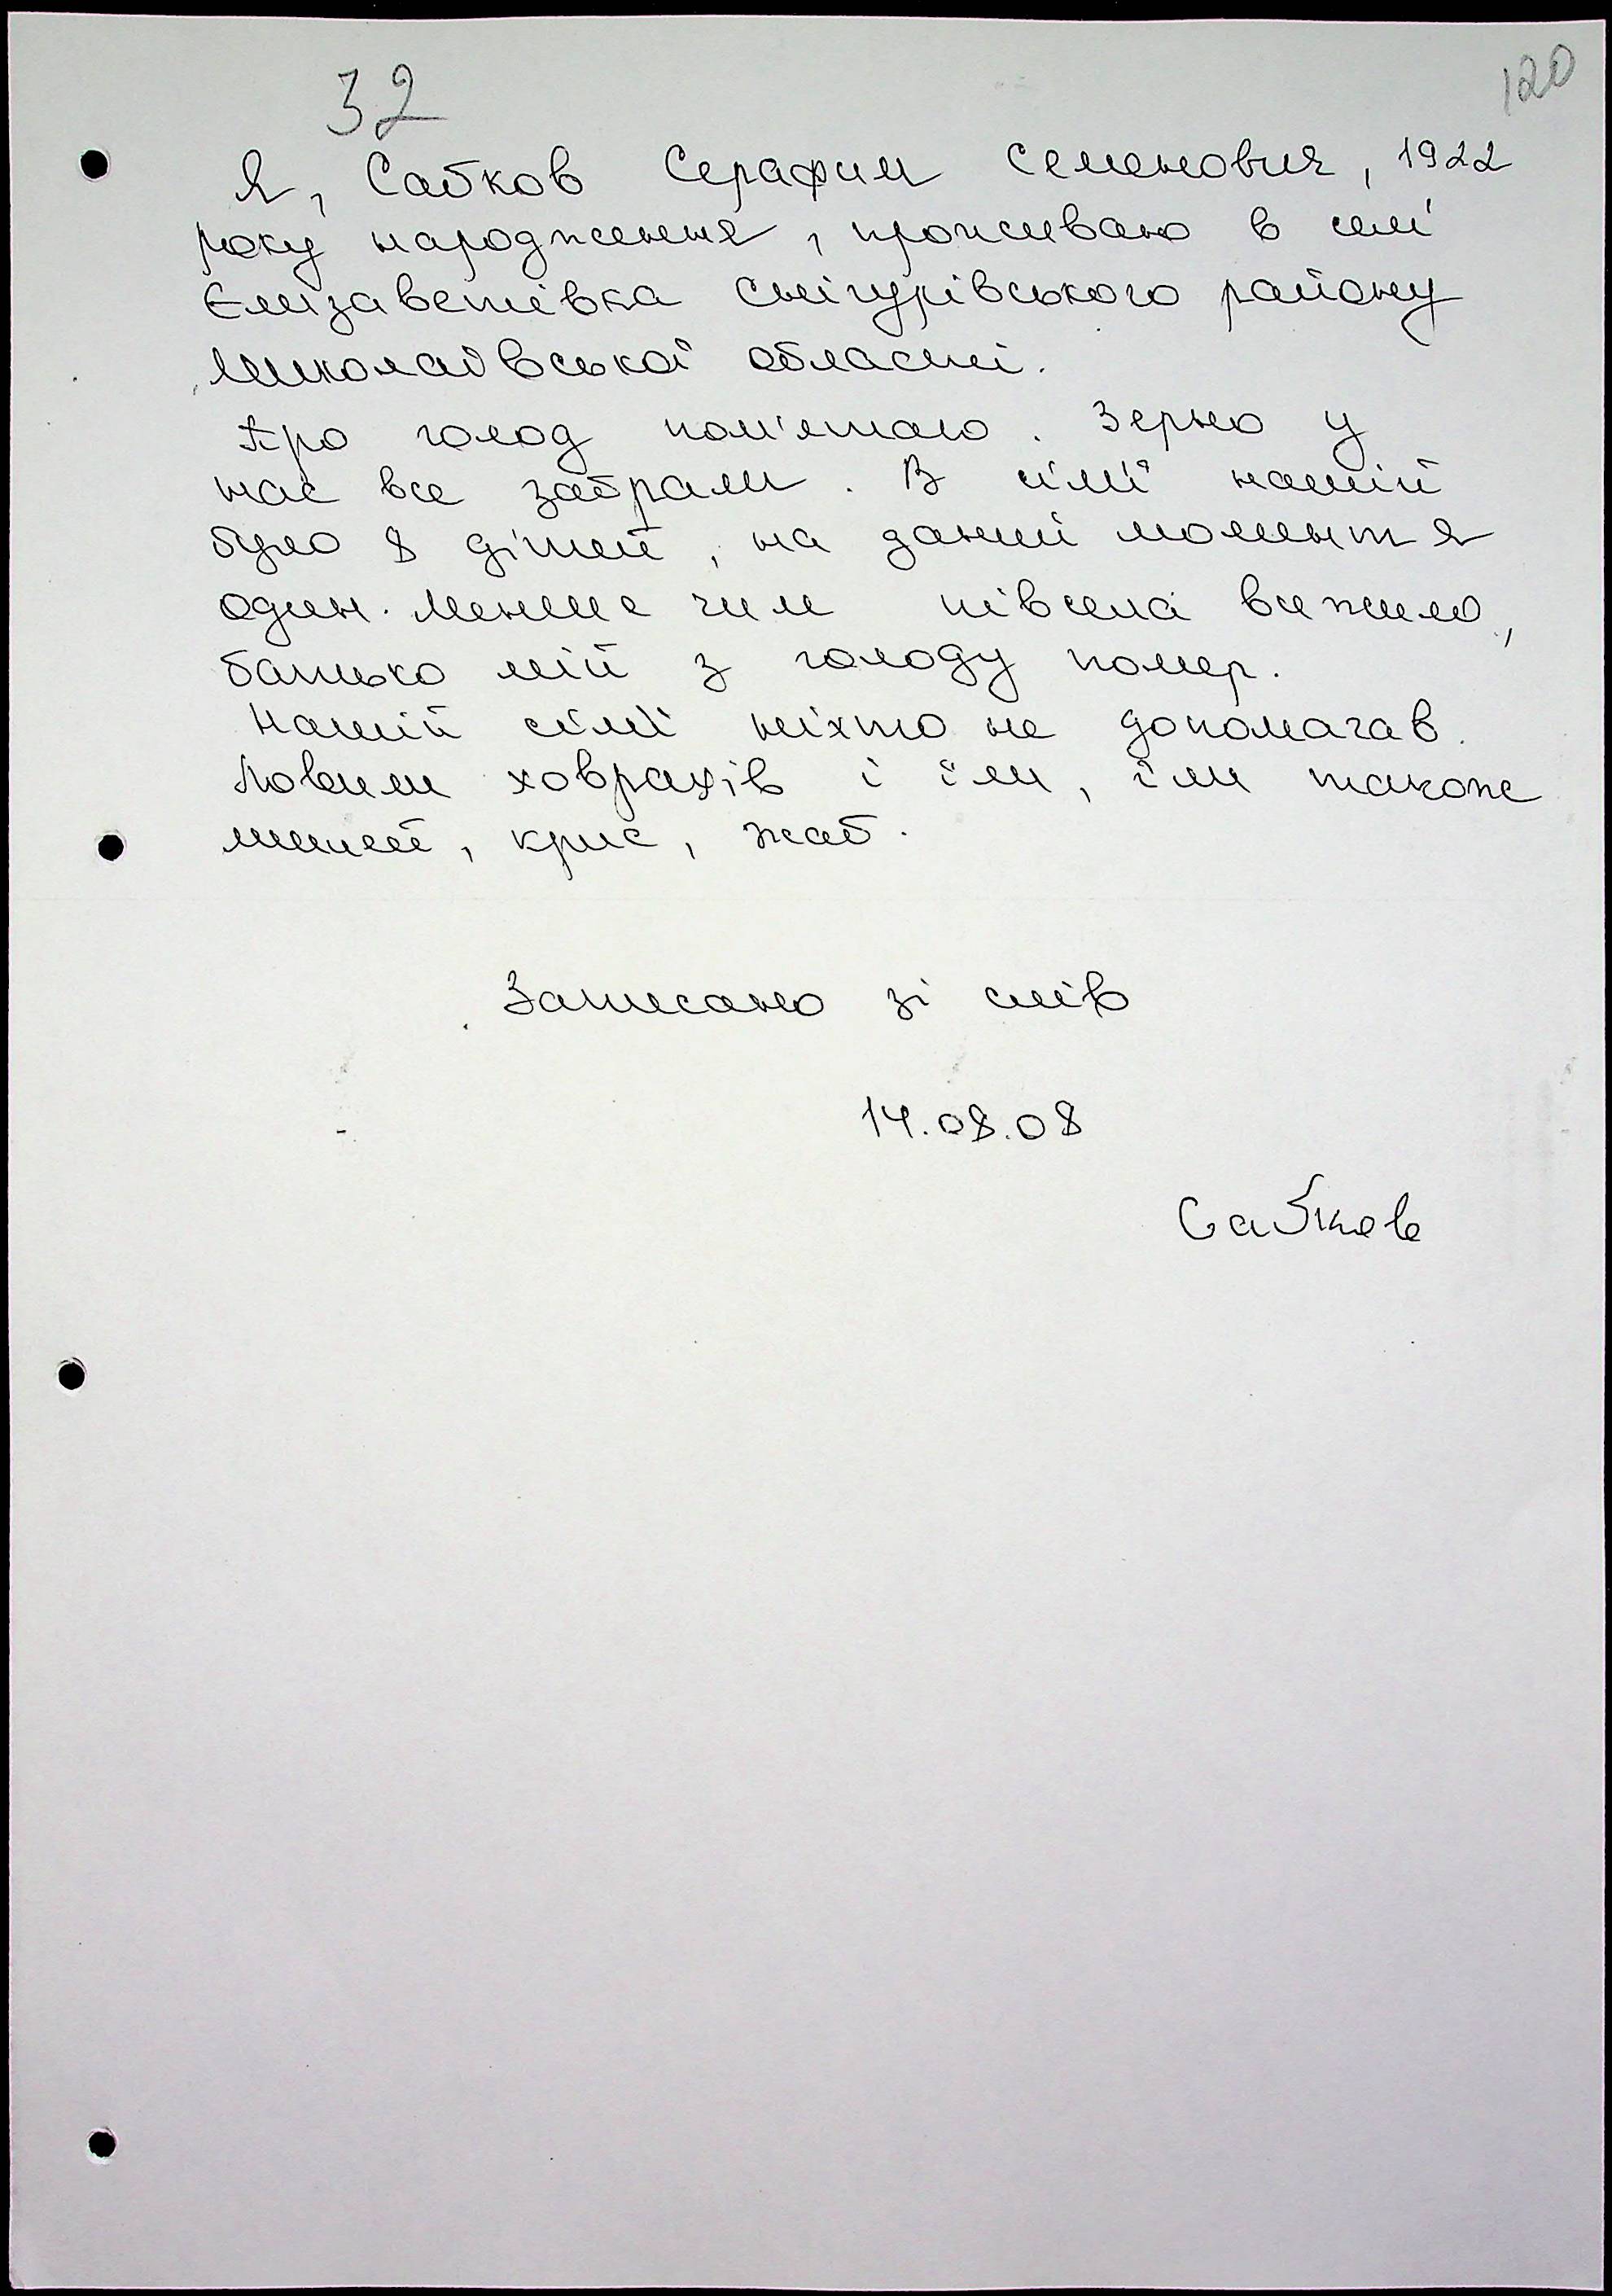 32
120
Я, Сабков Серафим Семенович, 1922
року народження, проживаю в селі
Єлизаветівка Снігурівського району
Миколаївської області.
Про голод пом'ятаю. Зерно у
нас все забрали. В сім'ї нашій
було 8 дітей, на даний момент я
один. Менше чим півсела вижило,
батько мій з голоду помер.
Нашій сім'ї ніхто не допомагав.
Ловили ховрахів і їли, їли також
мишей, крис, жаб.
Записано зі слів
14.08.08
Сабков